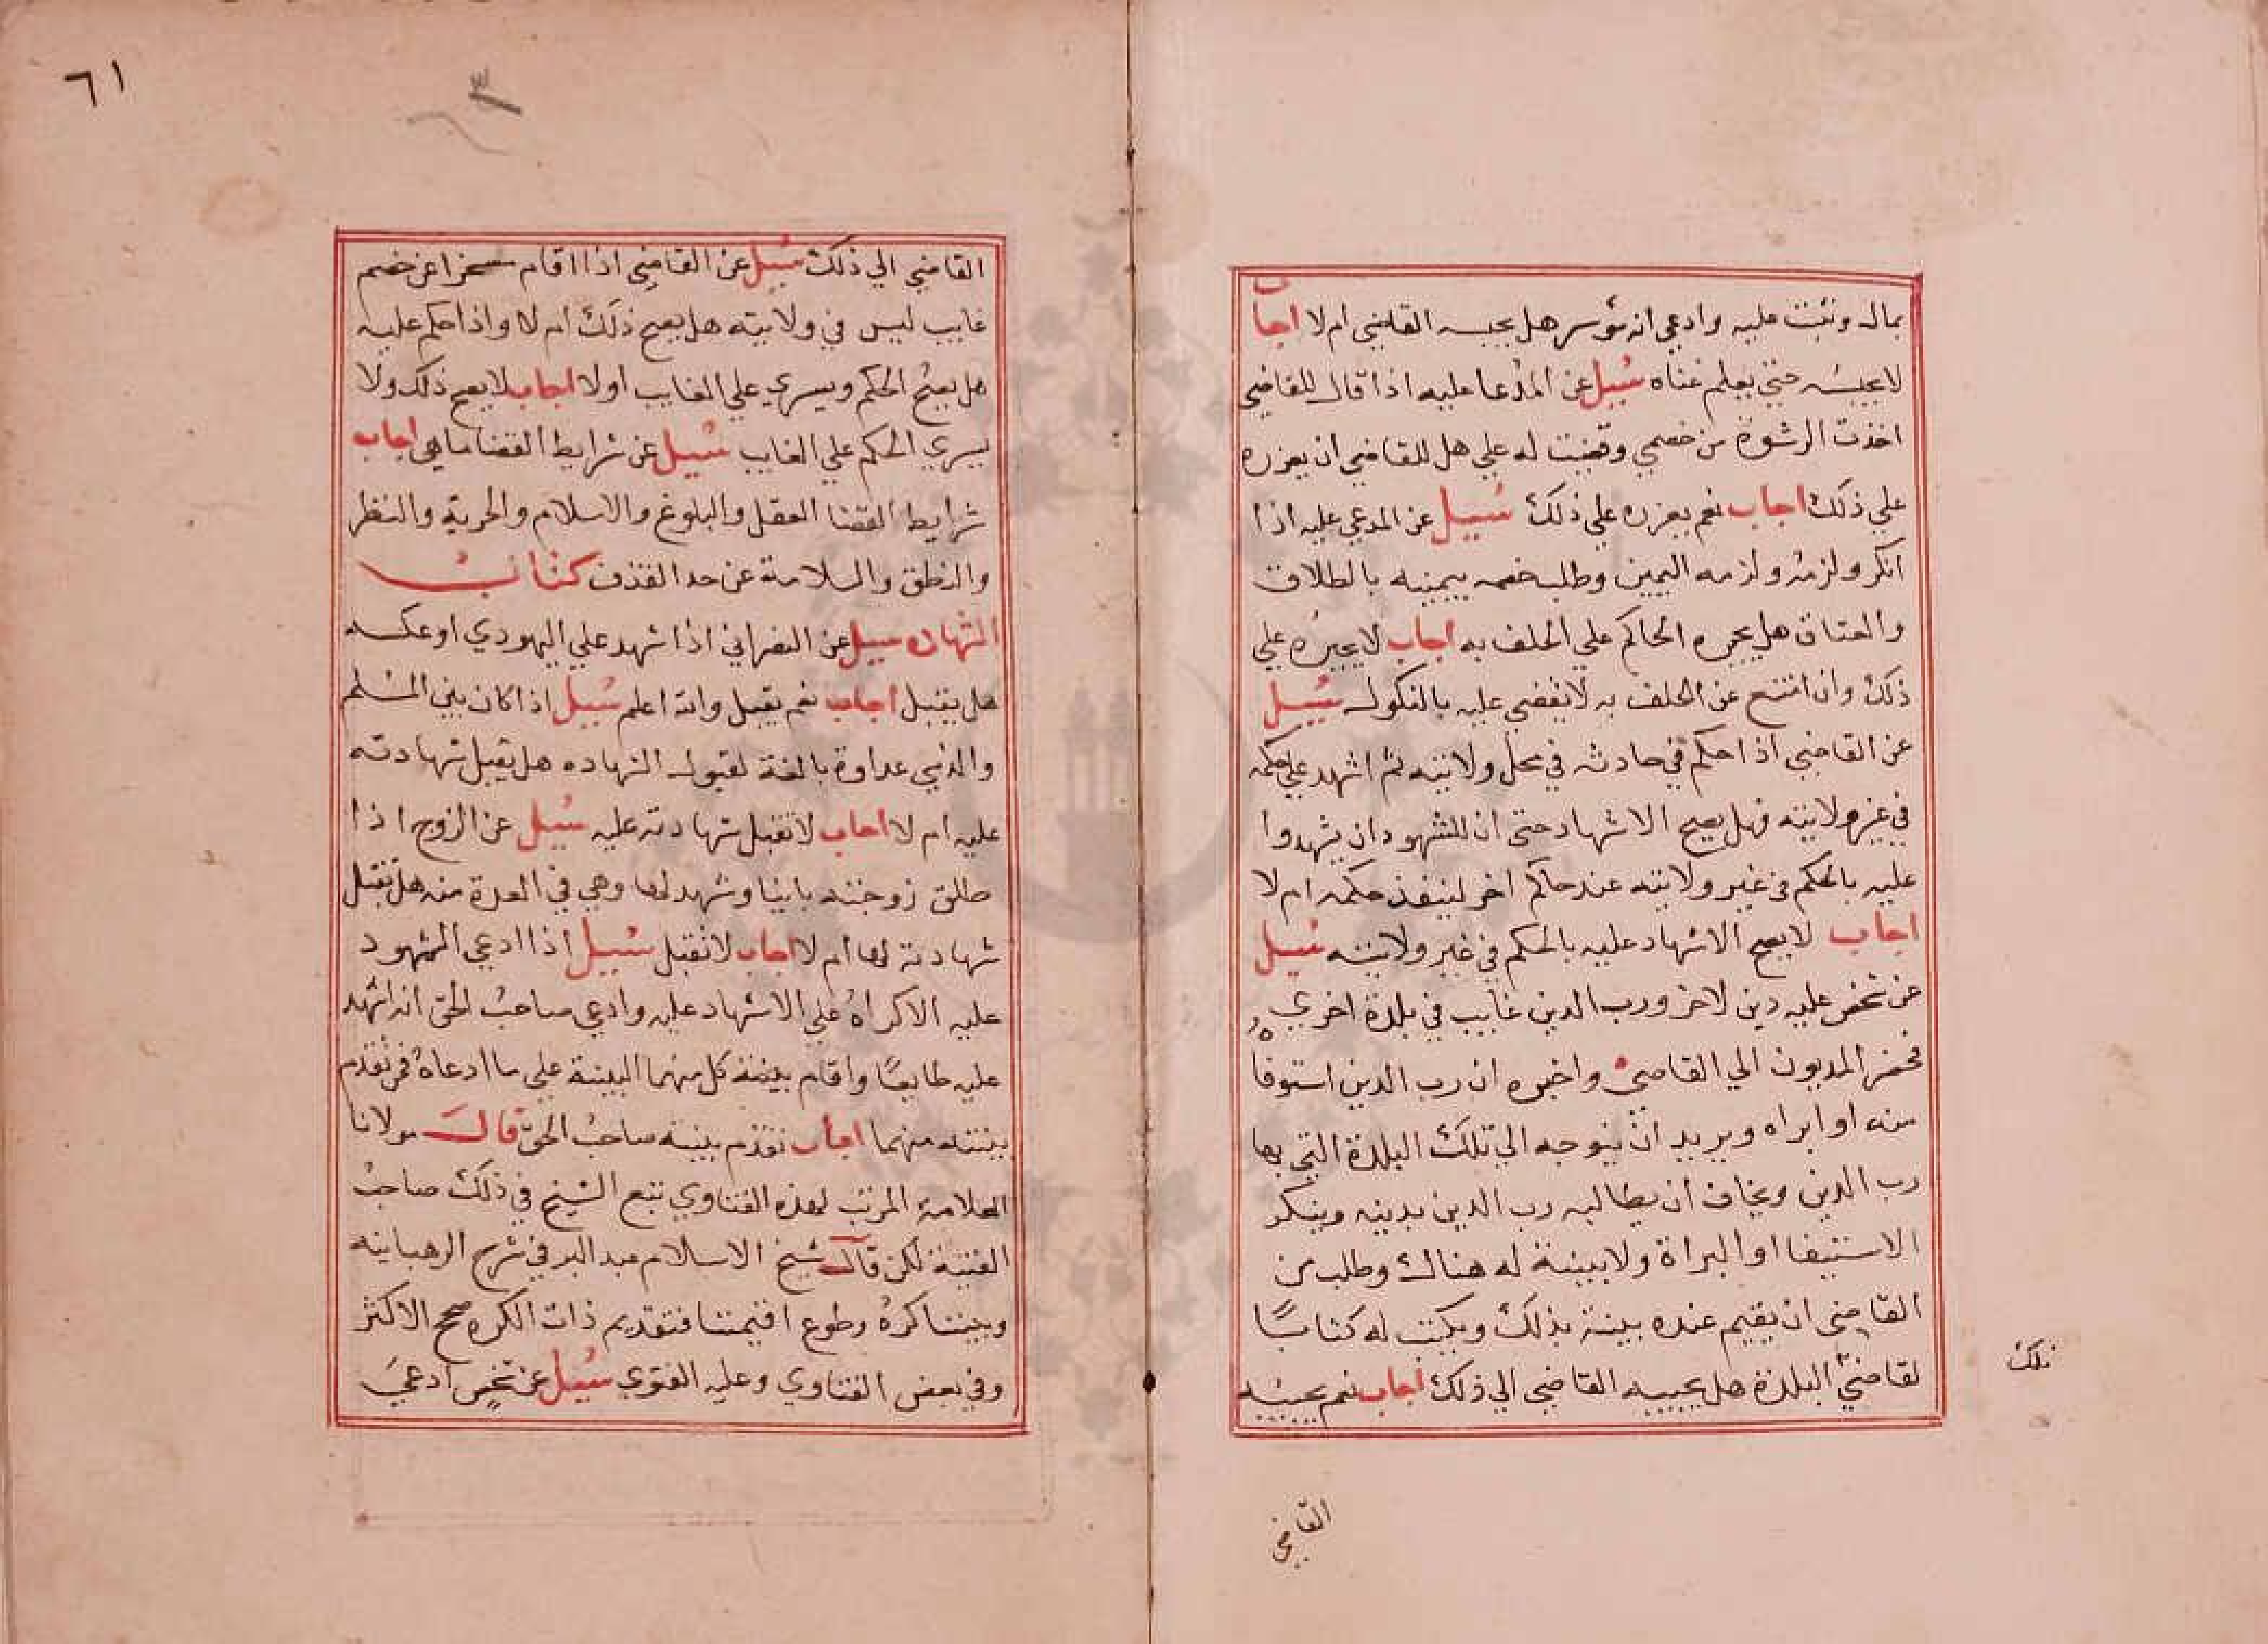 بماله ونثبت عليه وادعي انه موسر هل يحبسه القاضي ام لا اجاب
لا يحبسه حتي يعلم غناه سُيل عن المدعا عليه اذا قال للقاضي
اخذت الرشوة من خصمي وقضيت له علي هل للقاضي ان يعزره
علي ذلك اجاب نعم يعزره علي ذلك سُيل عن المدعي عليه اذا
انكر ولزمه ولزمه اليمين وطلب خصمه يمينه بالطلاق
والعتاق هل يجبره الحاكم علي الحلف به اجاب لا يجبره علي
ذلك وان امتنع عن الحلف به لا يقضي عليه بالنكول سُيل
عن القاضي اذا حكم في حادثه في محل ولايته ثم اشهد علي حكمه
في غير ولايته فهل يصح الاشهاد حتى ان للشهود ان يشهدوا
عليه بالحكم في غير ولايته عند حاكم اخر لينفذ حكمه ام لا
اجاب لا يصح الاشهاد عليه بالحكم في غير ولايته سُيل
عن شخص عليه دين لاخر ورب الدين غايب في بلدة اخري
فحضر المديون الي القاضي واخبره ان رب الدين استوفاه
منه او ابراه ويريد ان يتوجه الي تلك البلدة التي بها
رب الدين ويخاف ان يطالبه رب الدين بدينه وينكر
الاستيفا او البراة ولا بينة له هناك وطلب من
القاضي ان يقيم عنده بينة بذلك ويكتب له كتابًا
لقاضي البلدة هل يجيبه القاضي الي ذلك اجاب نعم يجيبه
تلك
القاضي
٦١
القاضي الي ذلك سُيل عن القاضي اذا اقام مسخرا عن خصم
غايب ليس في ولايته هل يصح ذلك ام لا واذا حكم عليه
هل يصح الحكم ويسري علي الغايب اولا اجاب لا يصح ذلك ولا
يسري الحكم علي الغايب سُيل عن شرايط القضا ما هي اجاب
شرايط القضا العقل والبلوغ والاسلام والحرية والنظر
والنطق والسلامة عن حد القذف كتاب
الشهاده سيل عن النصراني اذا شهد علي اليهودي او عكسه
هل يقبل اجاب نعم يقبل والله اعلم سُيل اذا كان بين المسلم
والذمي عداوة بالغة لقبول الشهاده هل يقبل شهادته
عليه ام لا اجاب لا تقبل شهادته عليه سُيل عن الزوج اذا
طلق زوجته باينا وشهد لها وهي في العدة منه هل تقبل
شهادته لها ام لا اجاب لا تقبل سُيل اذا ادعي المشهود
عليه الاكراهُ علي الاشهاد عليه وادعي صاحبُ الحق انه اشهد
عليه طايعًا واقام بينة كل منهما البينة علي ما ادعاه فمن تقدم
بينته منهما اجاب تقدم بينة صاحبُ الحق قال مولانا
العلامة المرتب لهذه الفتاوي تبع الشيخ في ذلك صاحبُ
القنية لكن قال شيخ الاسلام عبد البر في شرح الوهبانيه
وبينتا كرهٌ وطوع اقيمتا فتقديم ذات الكره صحح الاكثر
وفي بعض الفتاوي وعليه الفتوي سُيل عن شخص ادعي